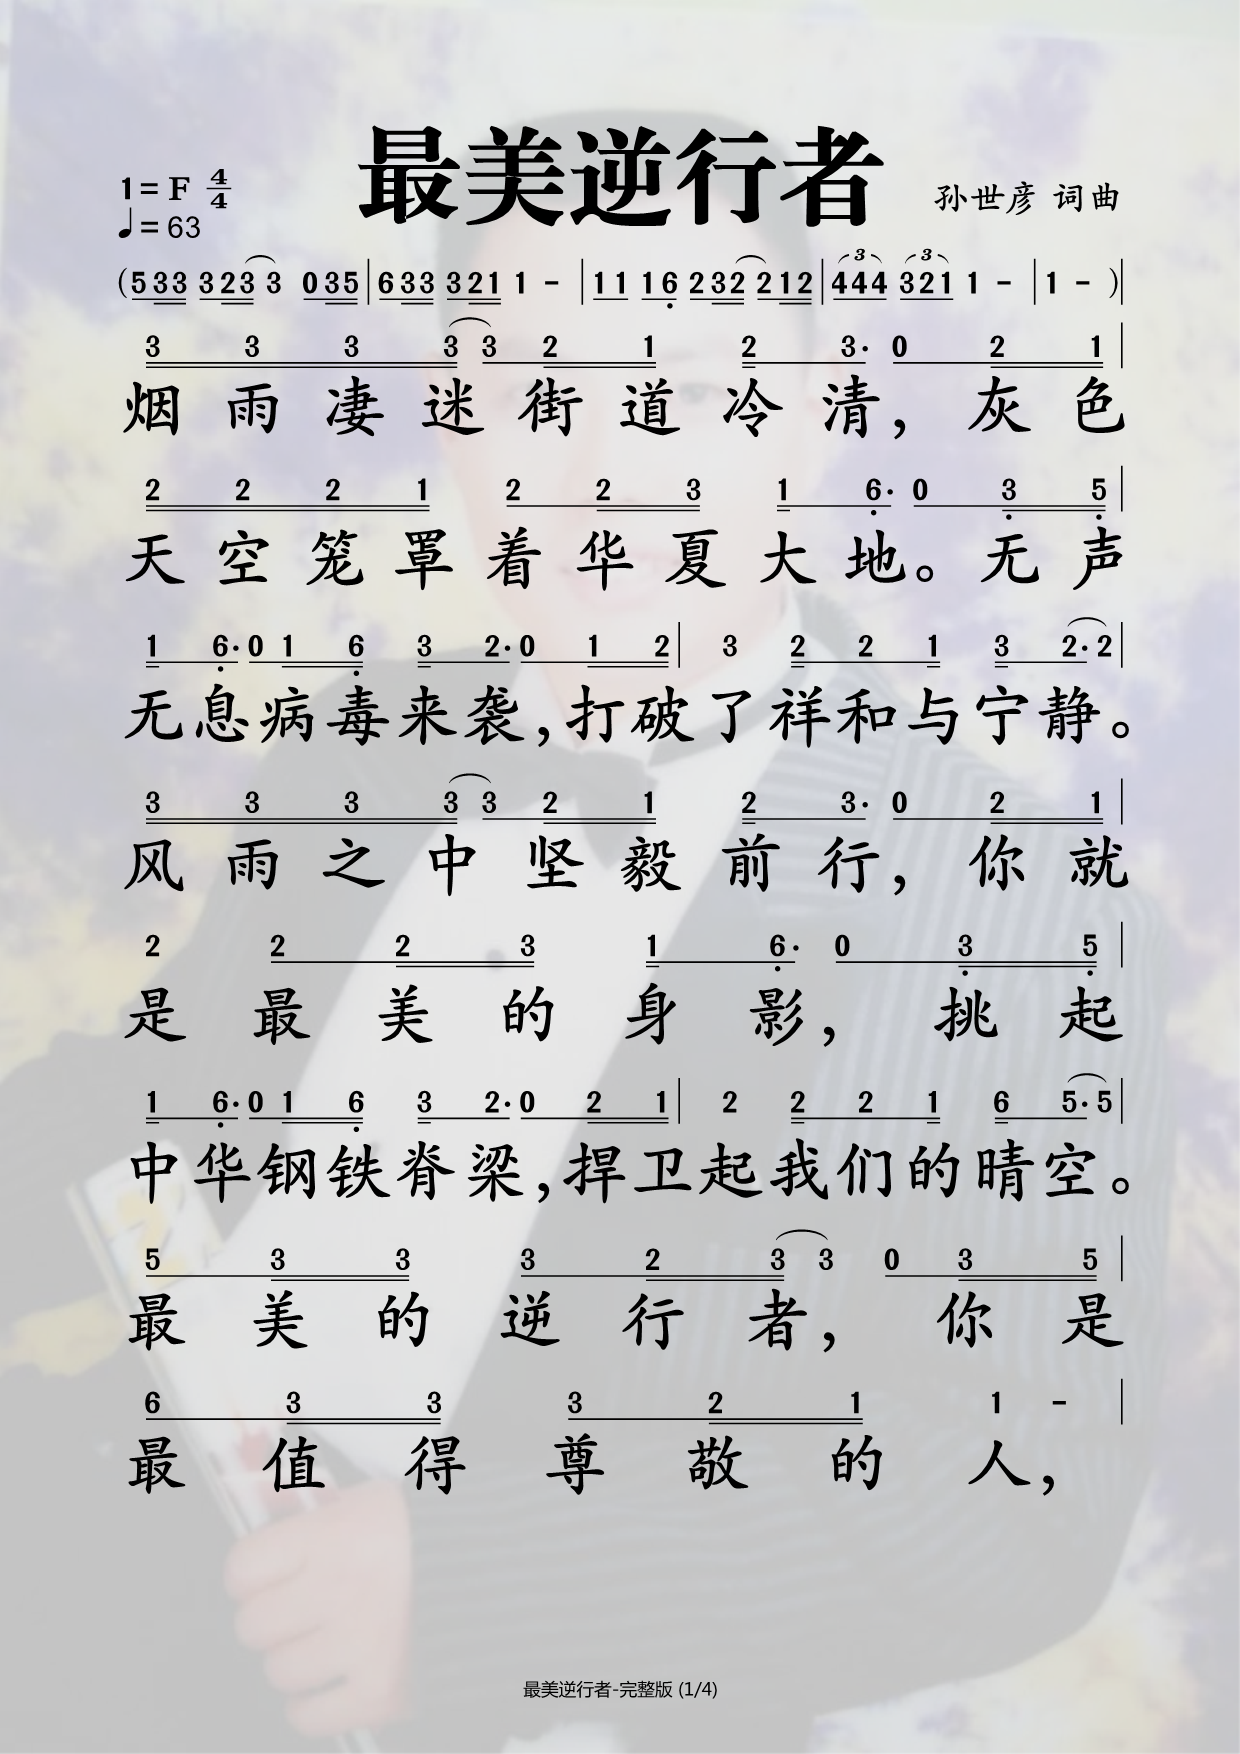 最美逆行者
1=F 4/4
孙世彦 词曲
♩=63
(533 323 3 035|633 321 1 -|11 16 232 212|444 321 1 -|1 -)|
3 3 3 3 3 2 1 2 3· 0 2 1|
烟雨凄迷街道冷清，灰色
2 2 2 1 2 2 3 1 6· 0 3 5|
天空笼罩着华夏大地。无声
1 6· 0 1 6 3 2· 0 1 2|3 2 2 1 3 2· 2|
无息病毒来袭，打破了祥和与宁静。
3 3 3 3 3 2 1 2 3· 0 2 1|
风雨之中坚毅前行，你就
2 2 2 3 1 6· 0 3 5|
是最美的身影，挑起
1 6· 0 1 6 3 2· 0 2 1|2 2 2 1 6 5· 5|
中华钢铁脊梁，捍卫起我们的晴空。
5 3 3 3 2 3 3 0 3 5|
最美的逆行者，你是
6 3 3 3 2 1 1 -|
最值得尊敬的人，
最美逆行者-完整版 (1/4)